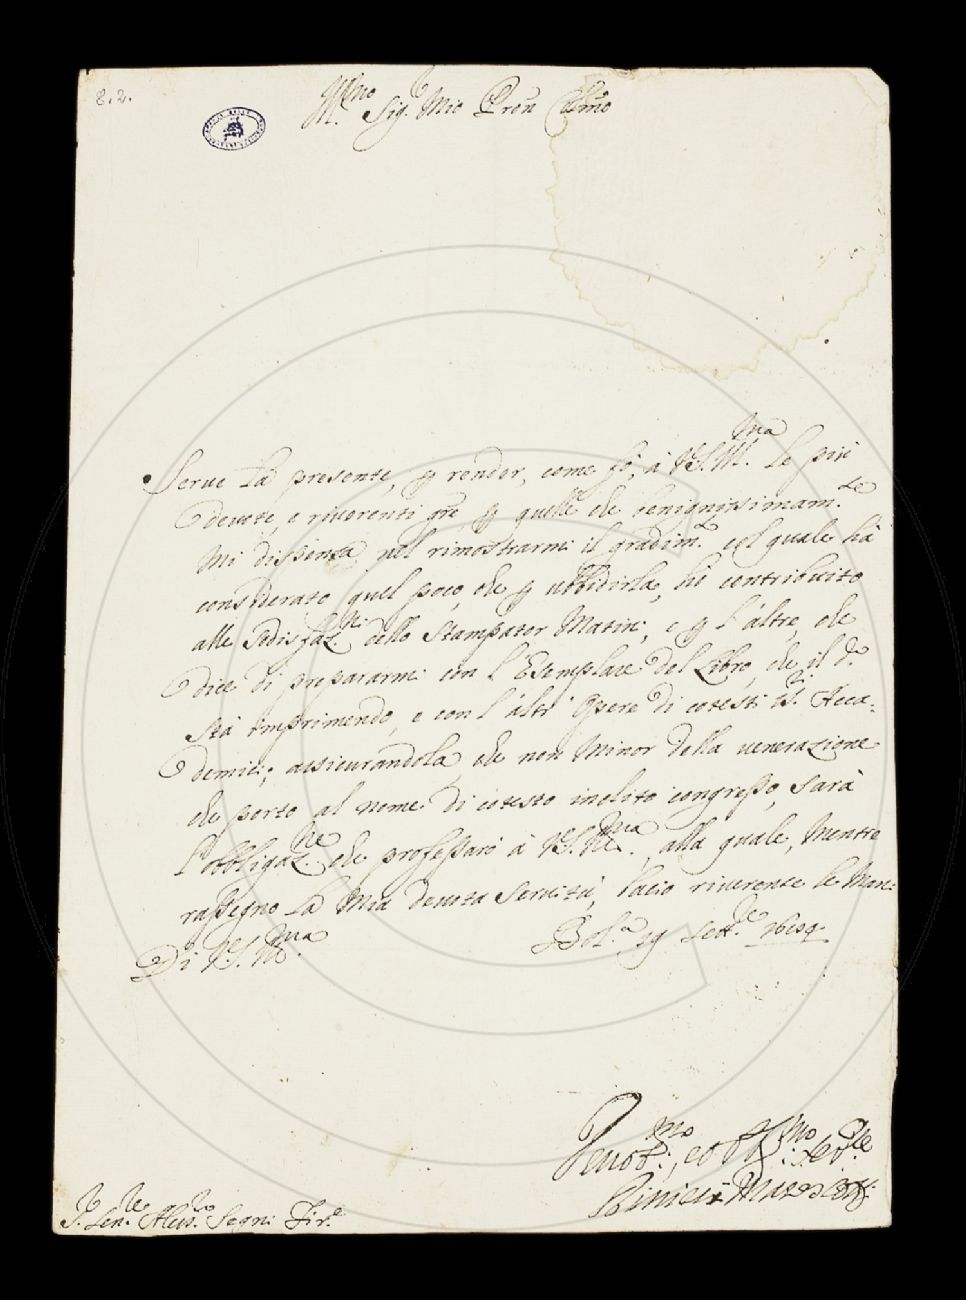 8.2.
Ill.mo Sig.r Mio Pron Colmo
Serve la presente, p render, come fò, à V.S. Ill.ma le più
devote, e riverenti gre p quelle che benignissimam.te
mi dispensa nel rimostrarmi il gradim.to col quale hà
considerato quel poco, che p ubbidirla, hò contribuito
alle sodisfaz.ni dello Stampator Matini, e p l'altre, che
dice di prepararmi con l'Esemplare del Libro, che il d.o
stà imprimendo, e con l'altri Opere di cotesti SS.ri Acca-
demici; assicurandola, che non minor della venerazione
che porto al nome di cotesto inclito congresso, sarà
l'obbligaz.ne che professarò à V.S. Ill.ma, alla quale, mentre
rassegno la mia devota servitù, bacio riverente le Mani
Di V.S. Ill.ma
Bol.a 19 Sett.bre
Devot.mo, et Obl.mo Ser.re
S.r Sen.re Aless.ro Segni Fir.e